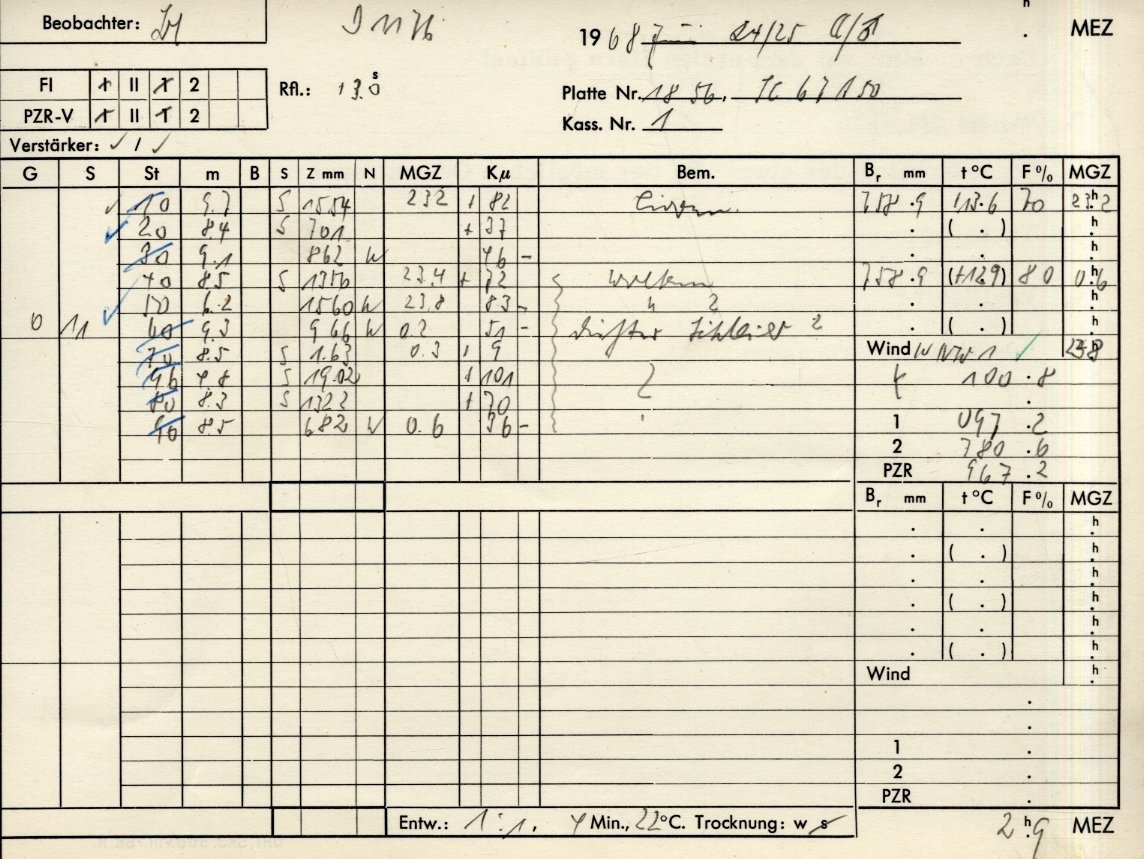 h
Beobachter:
1968 Juni 24/25
. MEZ
FI II 2
Rfl.: 13.0 s
Platte Nr. 1856.
PZR-V II 2
Kass. Nr. 1
Verstärker: ✓ / ✓
G S St m B S Z mm N MGZ Kμ Bem. Br mm t°C F% MGZ
✓ 10 9.7 S 1554 23.2 + 82 758.9 13.6 70 23.2 h
✓ 20 8.4 S 701 + 37 . ( . ) . h
30 9.1 862 W 46 - . . . h
40 8.5 S 1356 23.4 + 72 Wolken 758.9 (+12.9) 80 0.6 h
✓ 50 6.2 1560 W 23.8 83 - " 2 . . . h
0 11 60 9.3 966 W 0.2 51 - . ( . ) . h
70 8.5 S 1.63 0.3 + 9 Wind NW 1 ✓ 23.8 h
96 7.8 S 19.02 + 101 100.8
80 8.3 S 1322 + 70 .
90 8.5 682 W 0.6 36 - 1 097.2
2 780.6
PZR 967.2
Br mm t°C F% MGZ
. . . h
. ( . ) . h
. . . h
. ( . ) . h
. . . h
. ( . ) . h
Wind . h
.
.
1 .
2 .
PZR .
Entw.: 1:1, 4 Min., 22°C. Trocknung: w s
2 h.9 MEZ